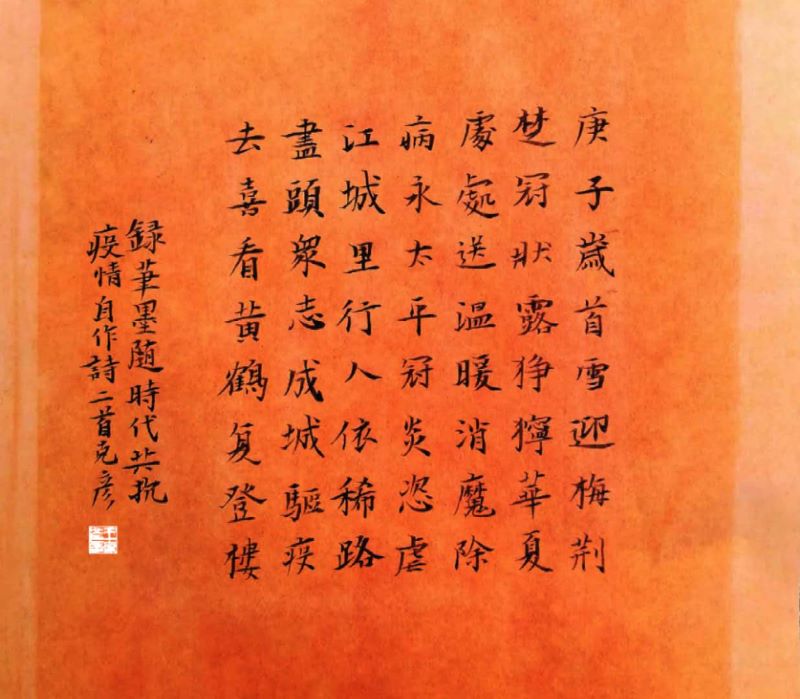 庚子嵗首雪迎梅荆
楚冠狀露狰獰華夏
處處送温暖消魔除
病永太平冠炎恣虐
江城里行人依稀路
盡頭衆志成城驅疾
去喜看黄鶴复登樓
録筆墨随時代共抗
疫情自作詩二首克彦